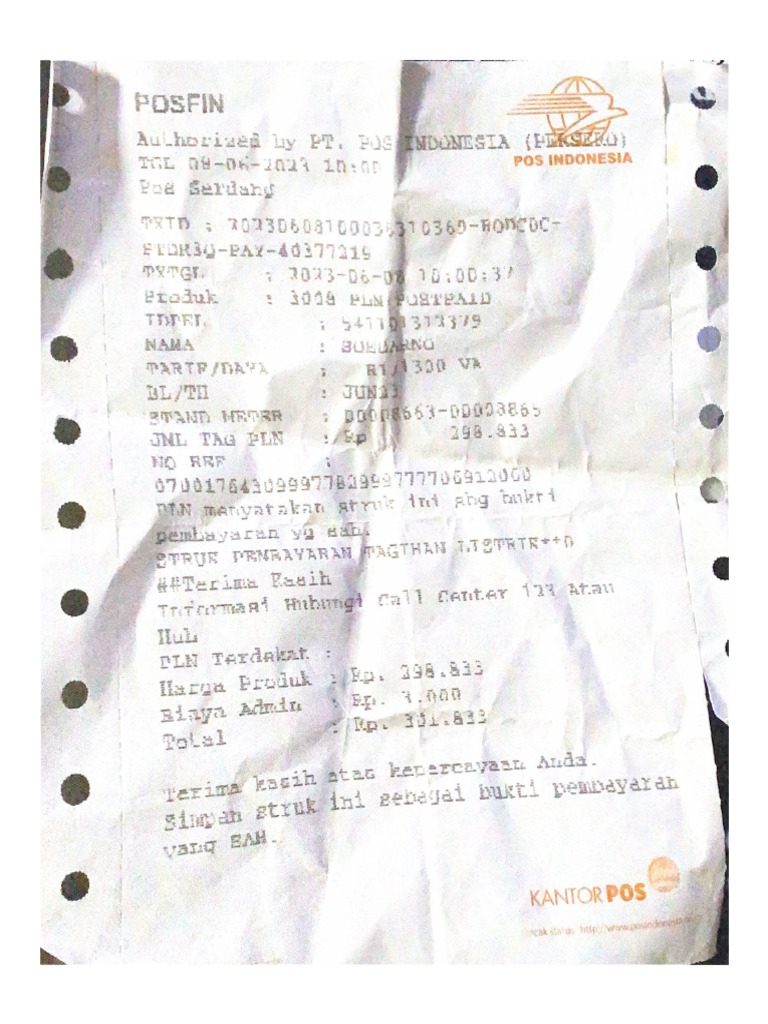 POSFIN
Authorized by PT. POS INDONESIA (PERSERO)
POS INDONESIA
TGL 08-06-2023 10:00
Pos Serdang
TXID :
PAY-40377219
TXTGL : 2023-06-08 10:00:37
Produk : 3008 PLN POSTPAID
IDPEL : 541101313379
NAMA : SOEDARNO
TARIF/DAYA : R1/1300 VA
BL/TH : JUN23
STAND METER : 00008663-00008865
JML TAG PLN : Rp 298.833
NO REF :
PLN menyatakan struk ini sbg bukti
pembayaran yg sah.
STRUK PEMBAYARAN TAGIHAN LISTRIK**0
##Terima Kasih
Informasi Hubungi Call Center 123 Atau
Hub
PLN Terdekat :
Harga Produk : Rp. 298.833
Biaya Admin : Rp. 3.000
Total : Rp. 301.833
Terima kasih atas kepercayaan Anda.
Simpan struk ini sebagai bukti pembayaran
yang SAH.
KANTOR POS
status http://www.posindonesia